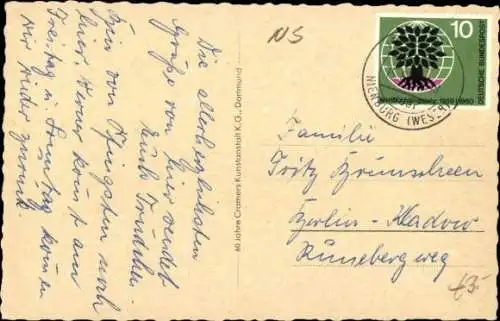 Die allerherzlichsten
Grüße von hier sendet
Euch Trudchen.
Bin von Pfingsten noch
hier, Werner kommt am
Freitag u. Sonntag kommen
wir wieder zurück.
60 Jahre Cramers Kunstanstalt K.G., Dortmund
NS
10
DEUTSCHE BUNDESPOST
Weltflüchtlingsjahr 1959/1960
NIENBURG (WESER)
Familie
Fritz
Berlin-Kladow
Runebergweg